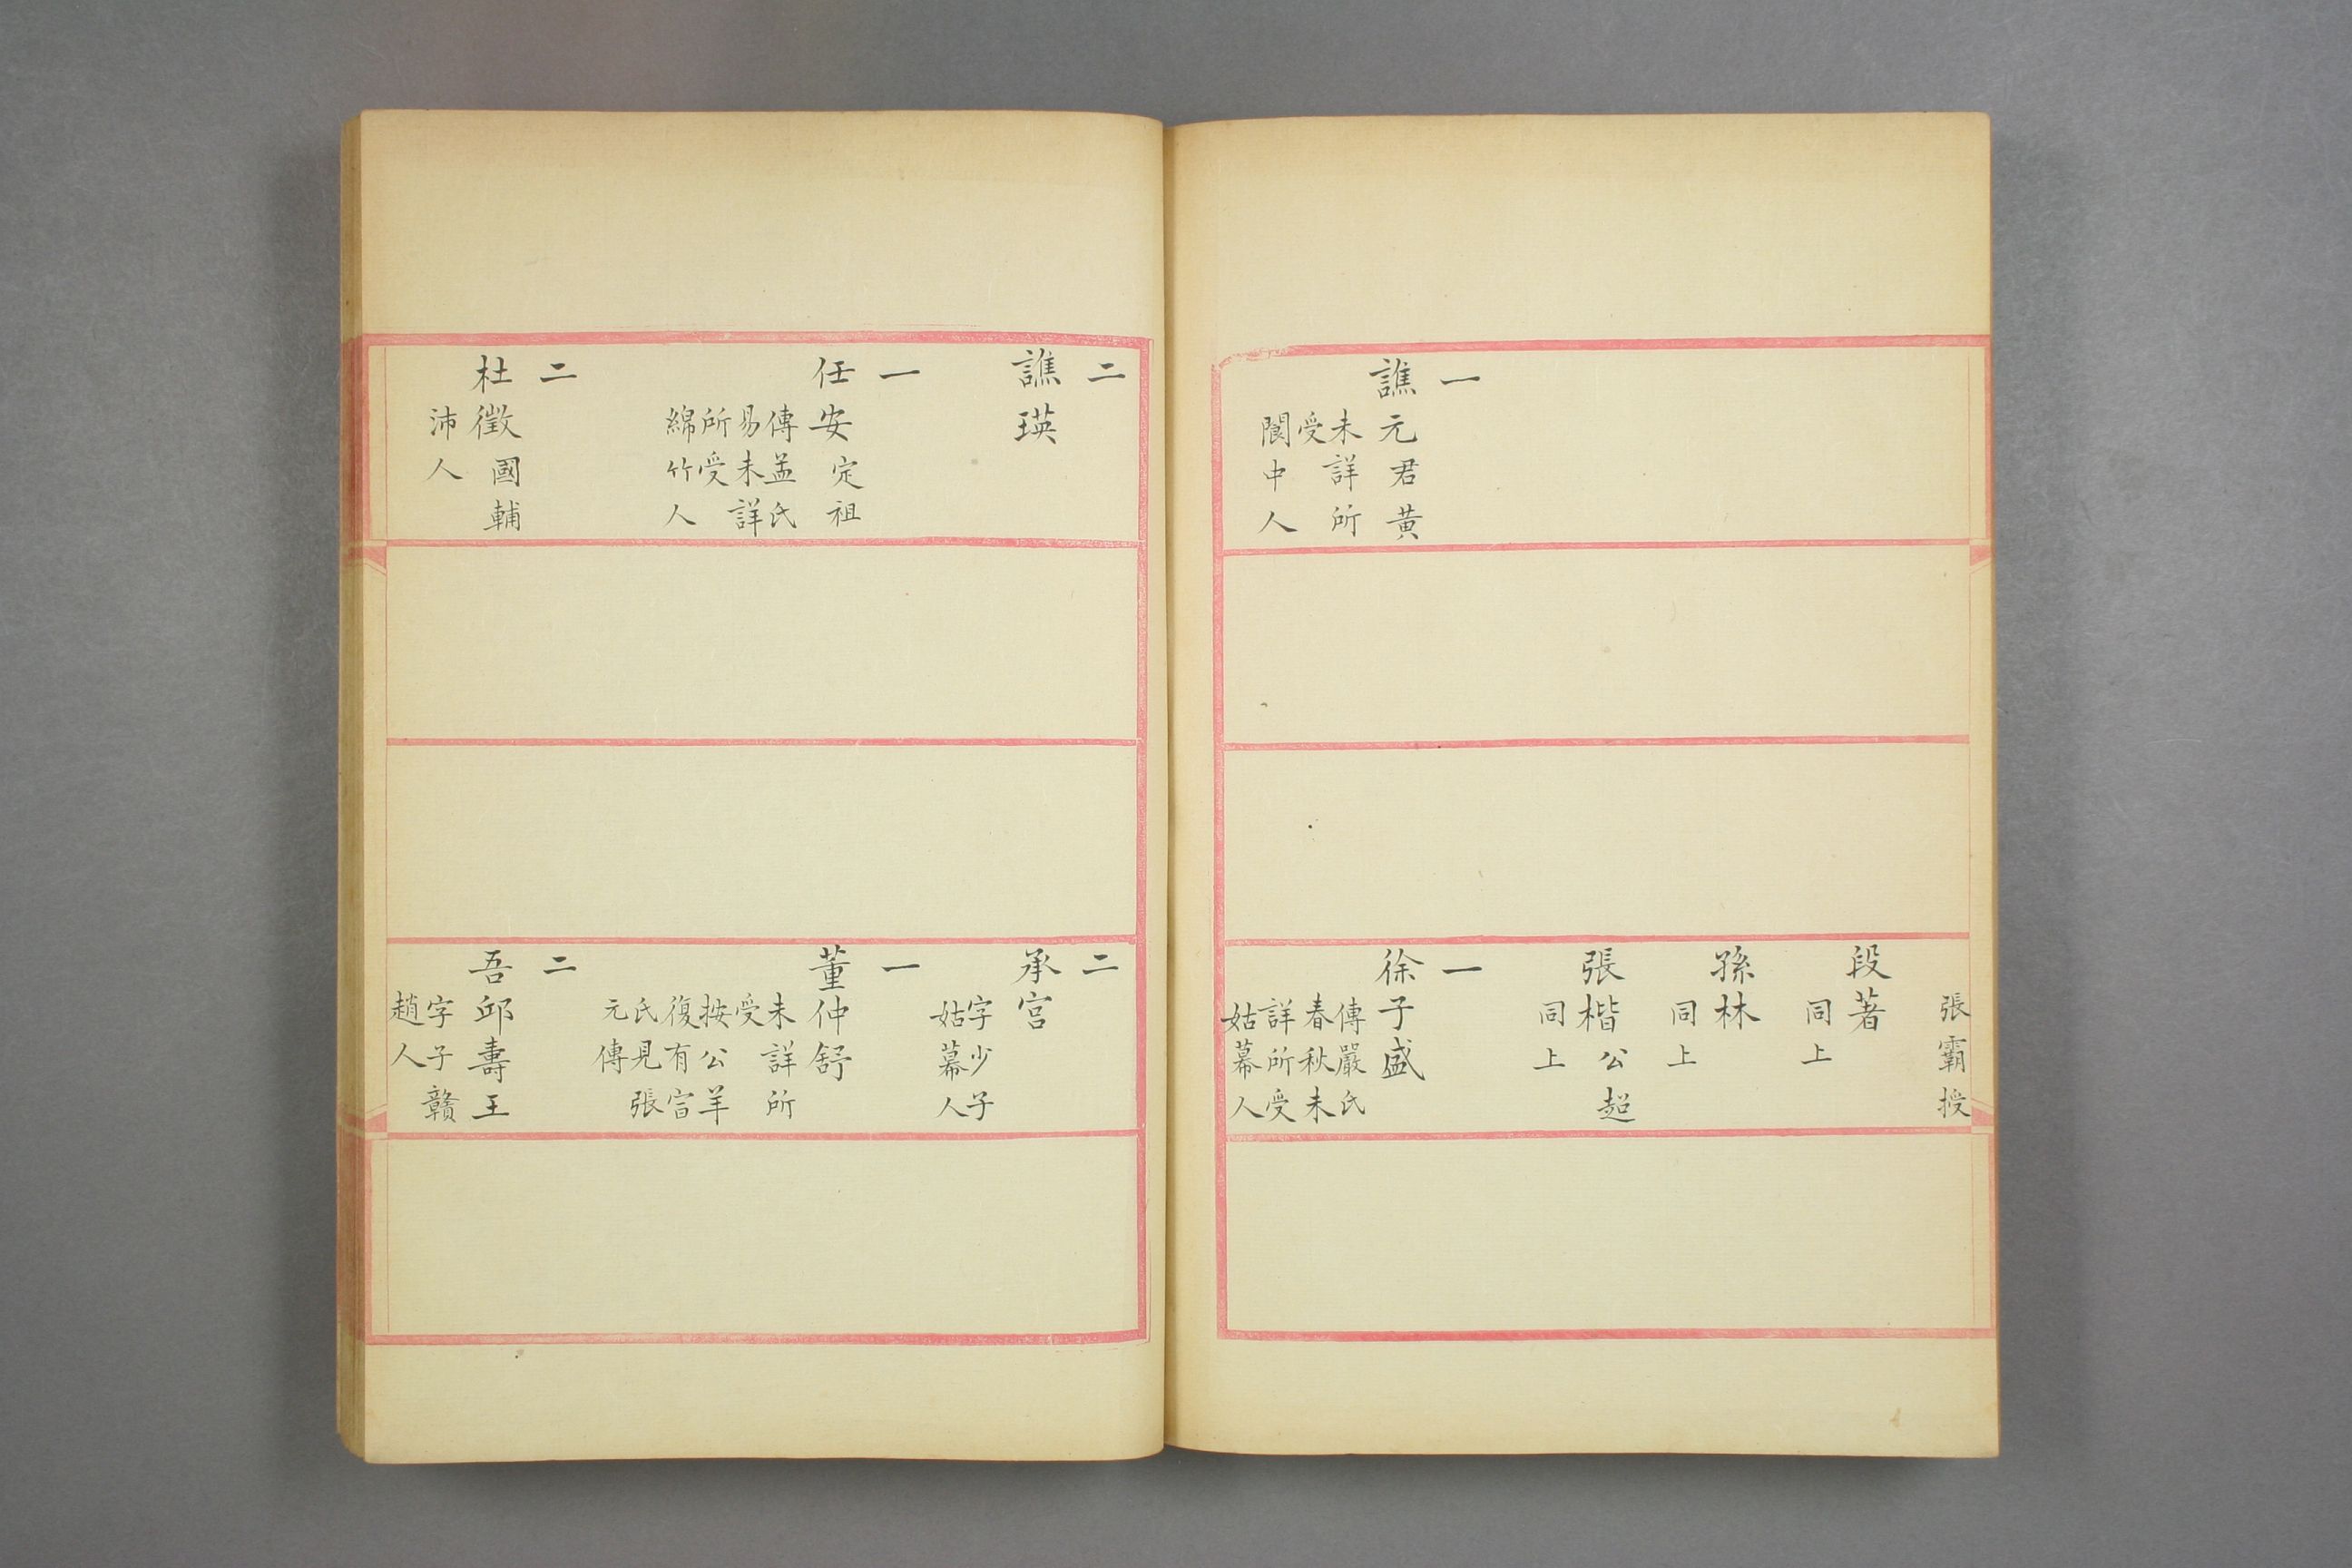 一
譙元君黄
未詳所
受
閬中人
張霸授
段著
同上
孫林
同上
張楷公超
同上
一
徐子盛
傳嚴氏
春秋未
詳所受
姑幕人
二
譙瑛
一
任安定祖
傳孟氏
易未詳
所受
綿竹人
二
杜徵國輔
沛人
二
承宮
字少子
姑幕人
一
董仲舒
未詳所
受
按公羊
復有官
氏見張
元傳
二
吾邱壽王
字子贛
趙人